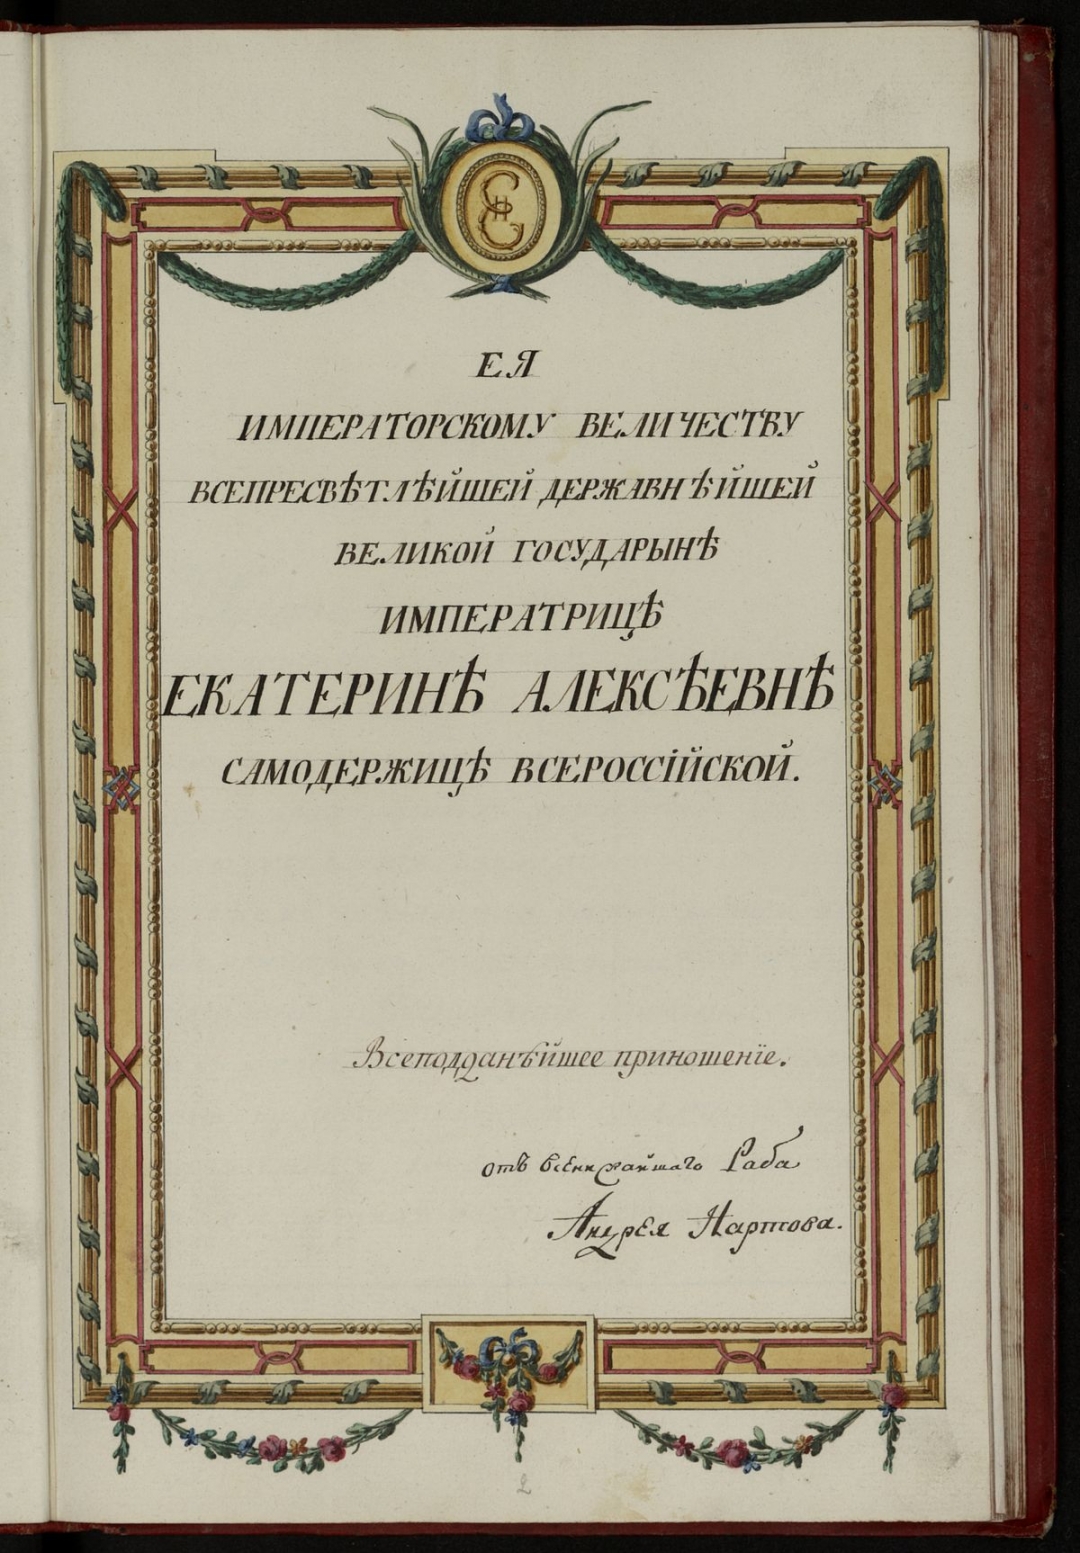 ЕЯ
ИМПЕРАТОРСКОМУ ВЕЛИЧЕСТВУ
ВСЕПРЕСВѢТЛѢЙШЕЙ ДЕРЖАВНѢЙШЕЙ
ВЕЛИКОЙ ГОСУДАРЫНѢ
ИМПЕРАТРИЦѢ
ЕКАТЕРИНѢ АЛЕКСѢЕВНѢ
САМОДЕРЖИЦѢ ВСЕРОССІЙСКОЙ.
Всеподданѣйшее приношенїе.
отъ всенижайшаго Раба
Андрея Нартова.
2